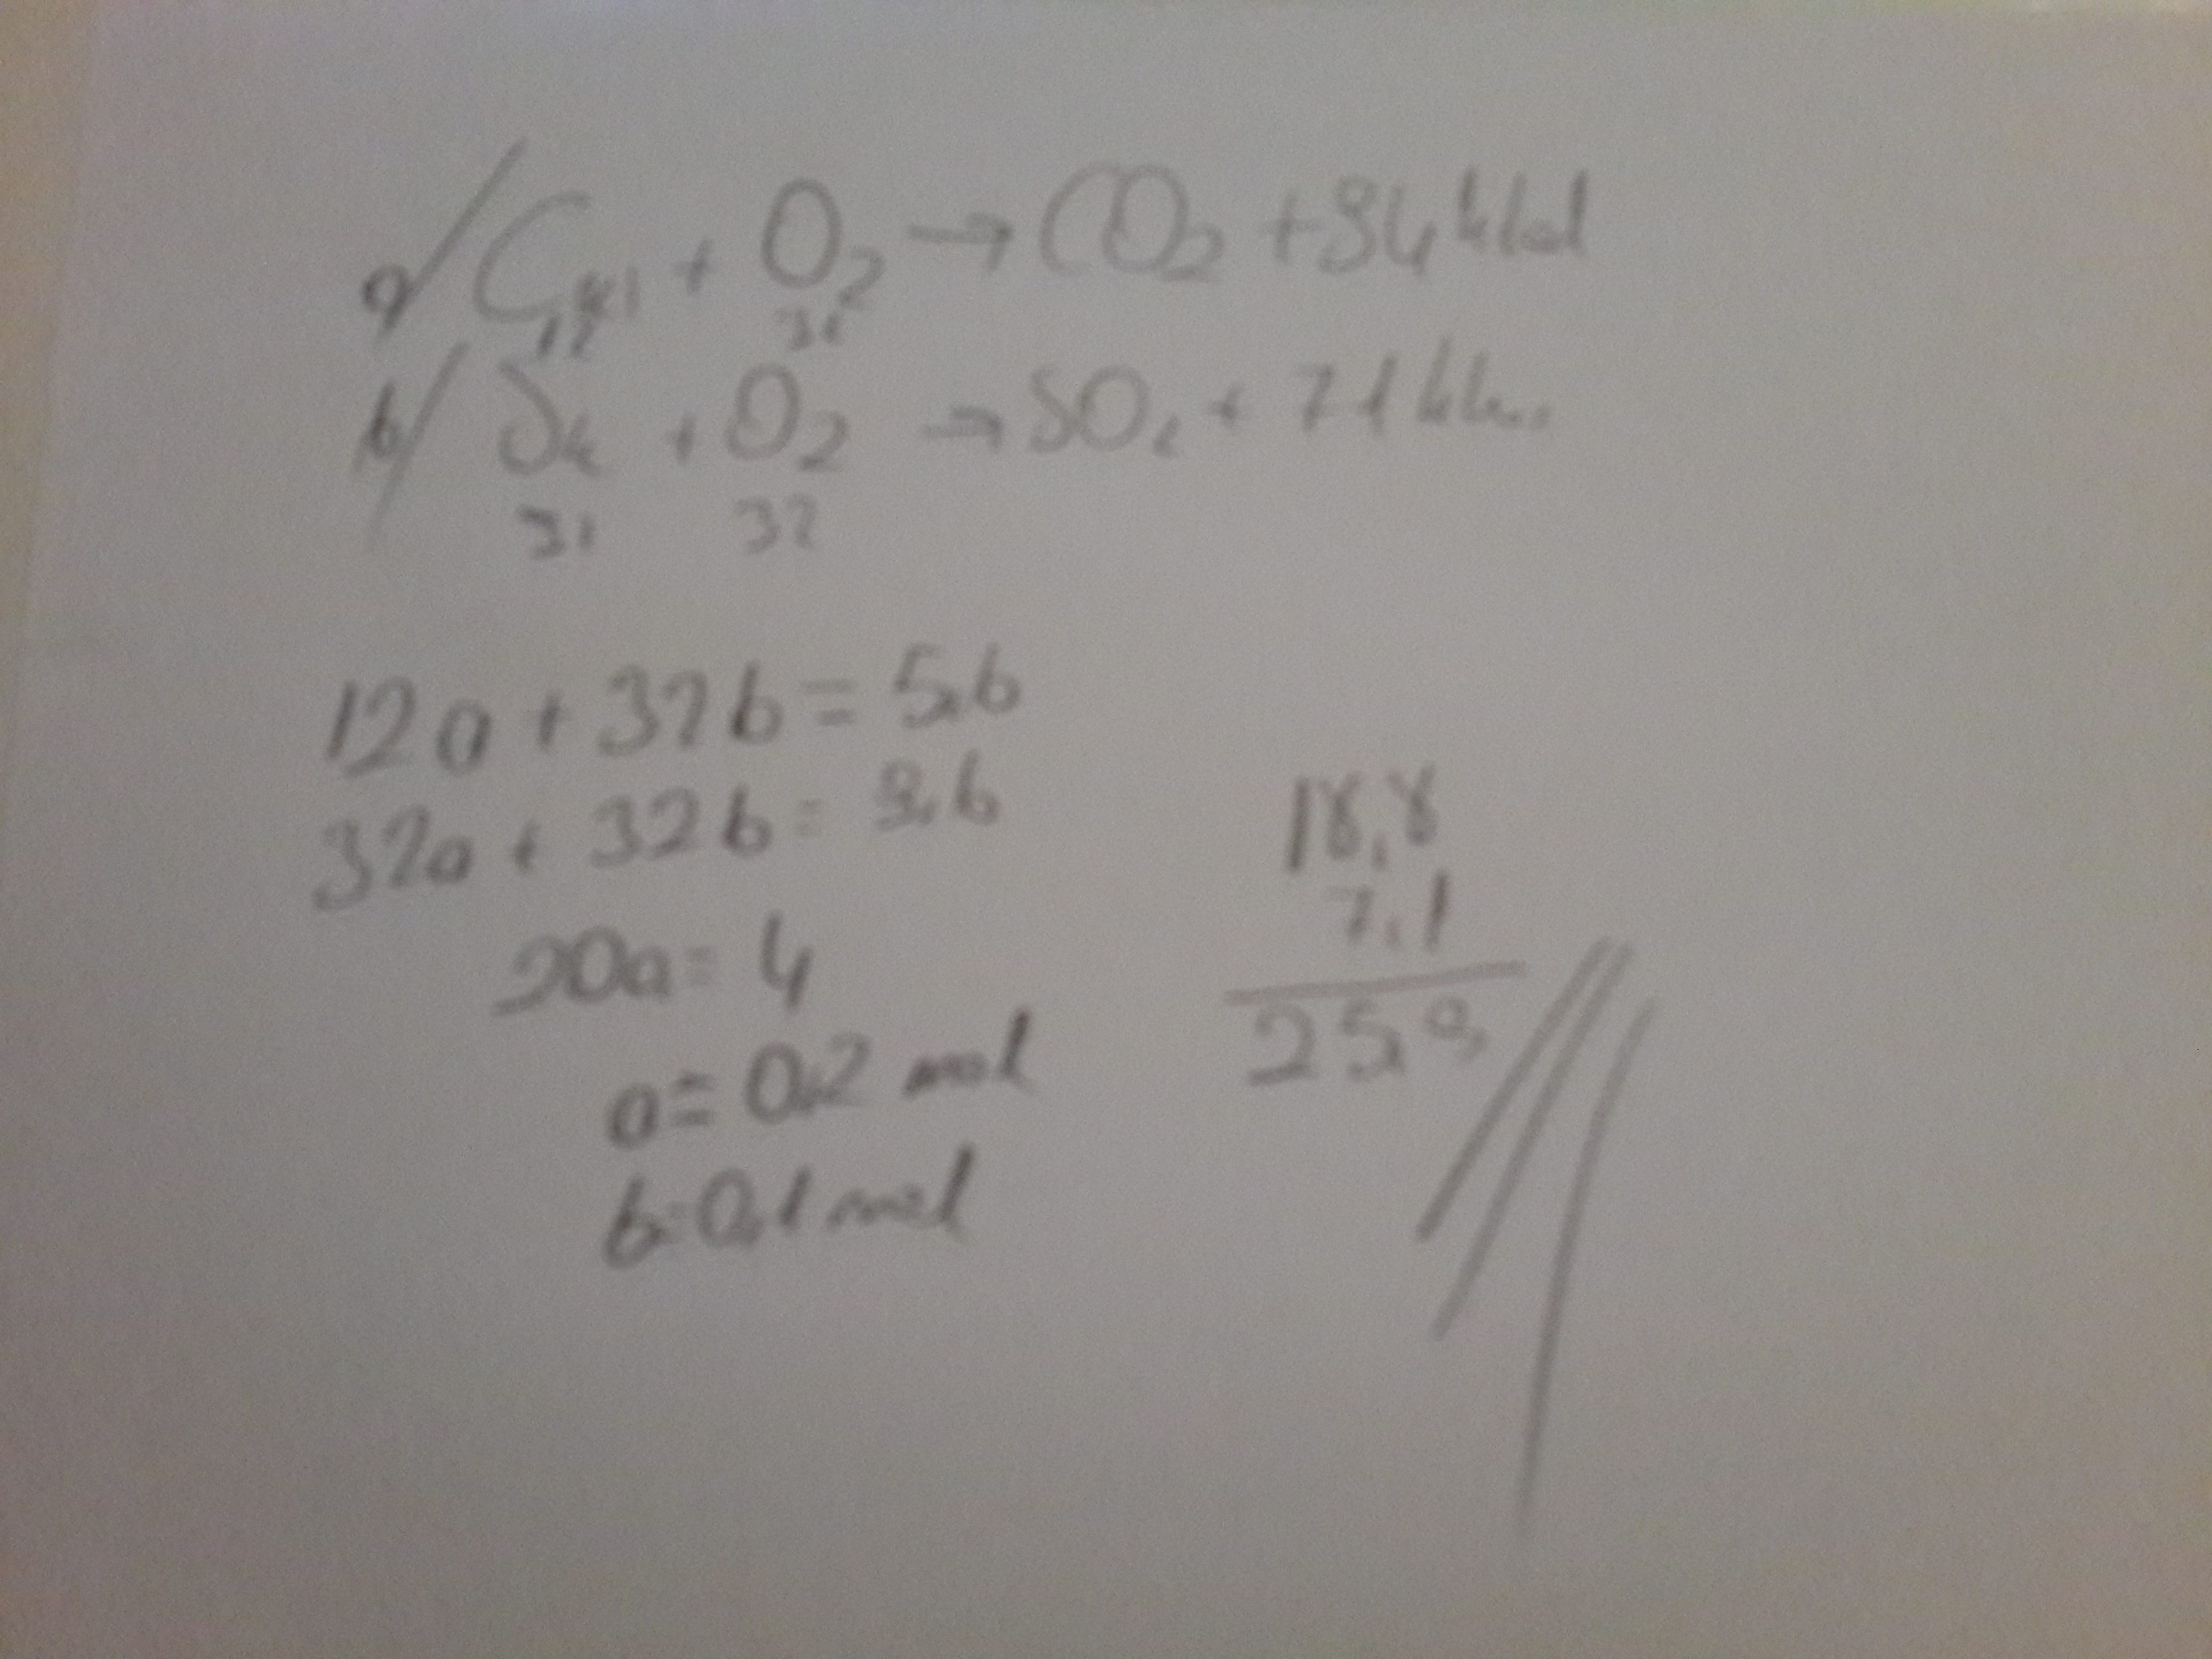 a/ C(k) + O2 → CO2 + 94 kkal
12 32
b/ Sk + O2 → SO2 + 71 kk
32 32
12a + 32b = 5,6
32a + 32b = 9,6
20a = 4
a = 0,2 mol
b = 0,1 mol
18,8
7,1
25,9